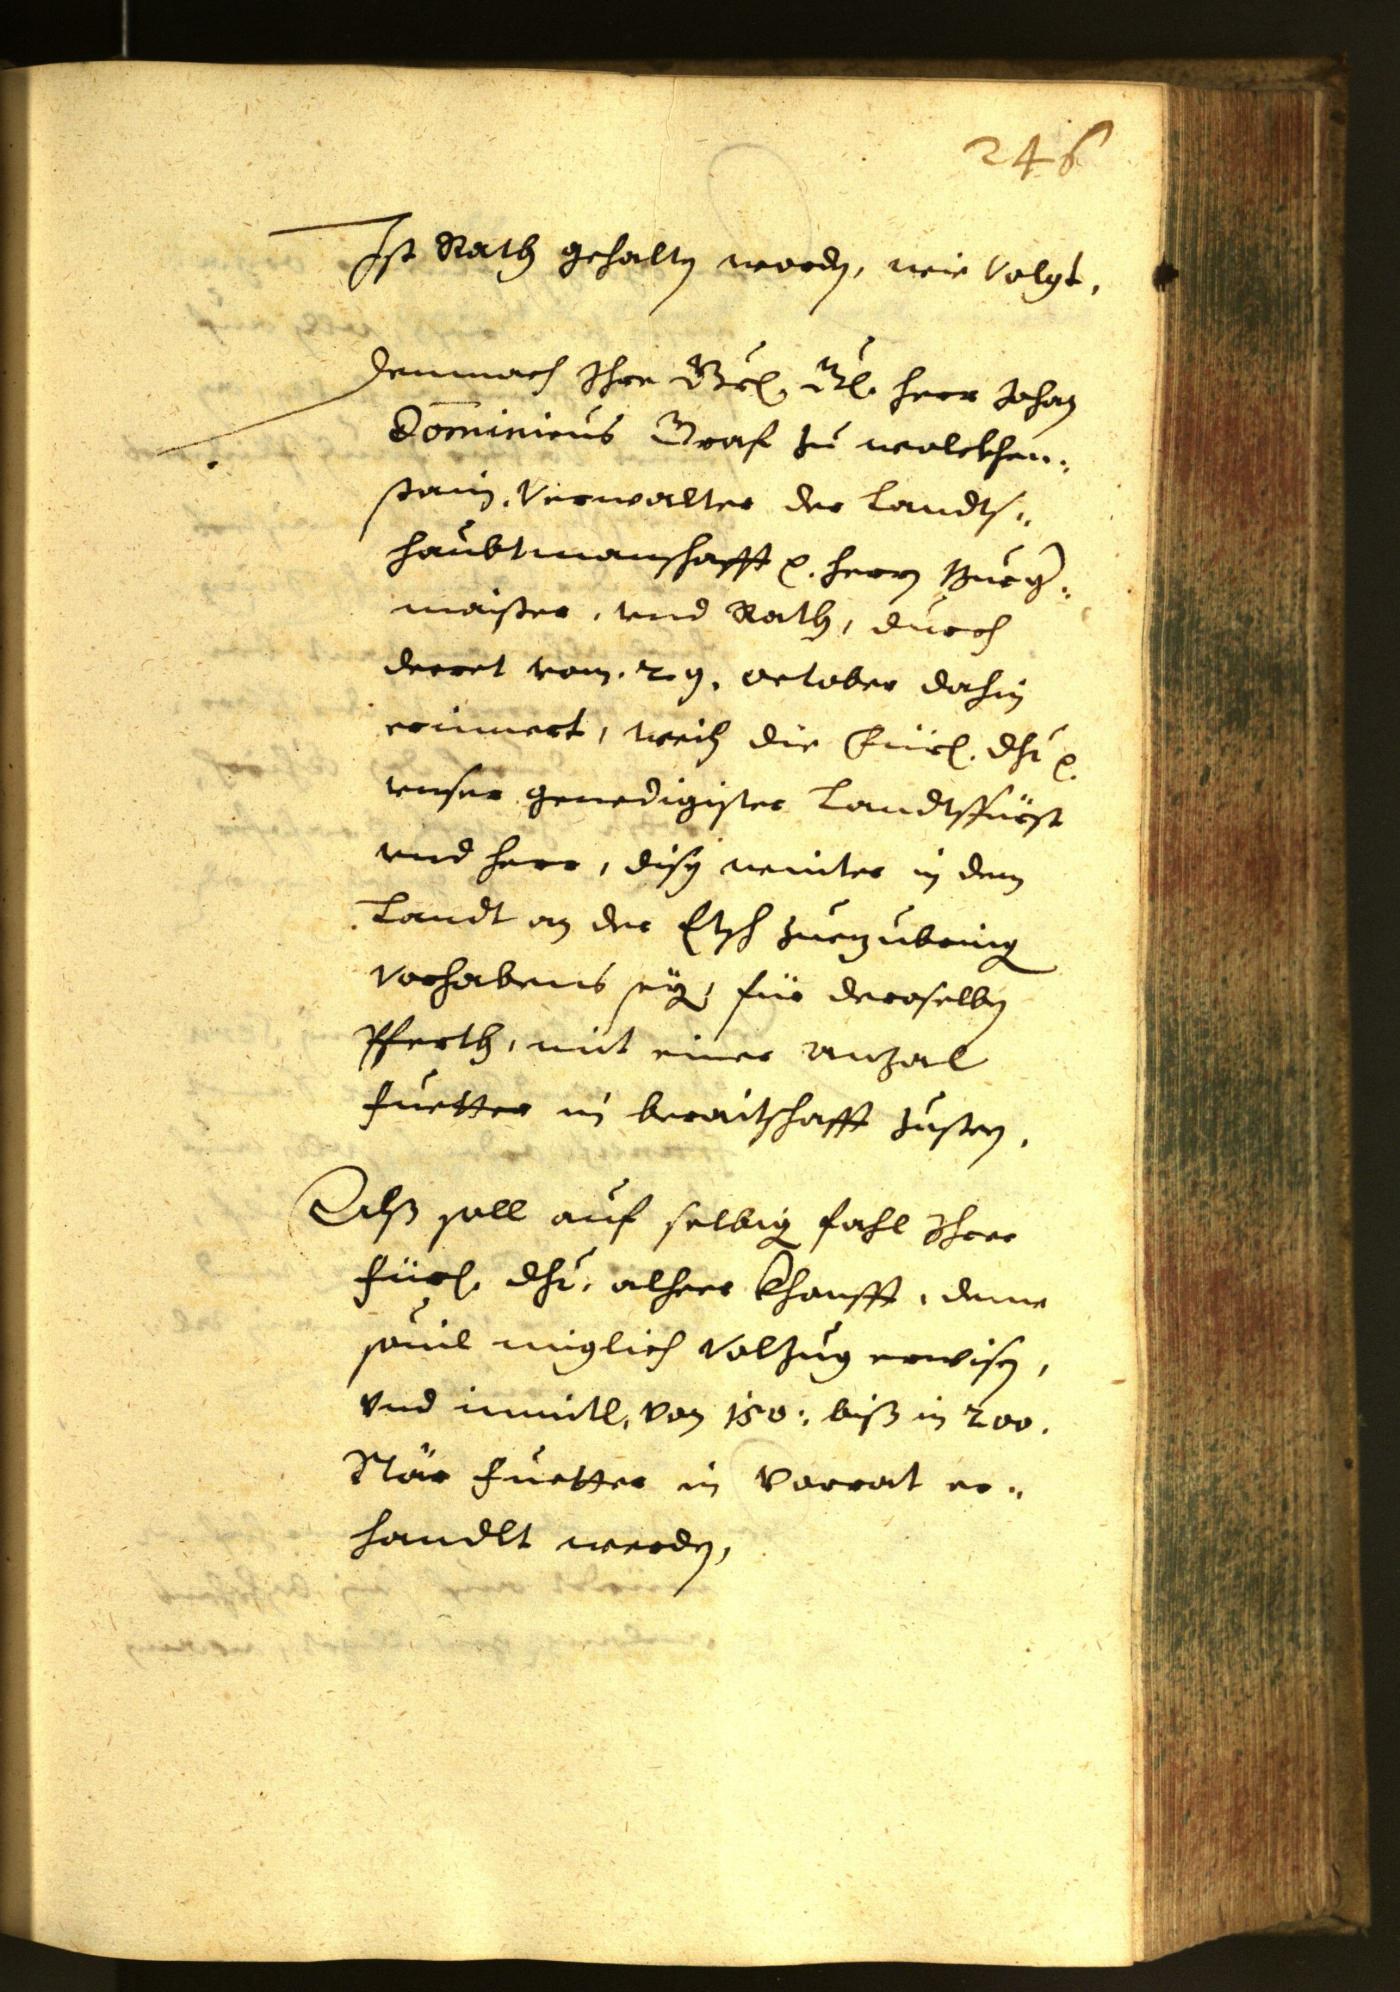 246
Ist Rath gehalten worden, wie Volgt.
Demnach Ihre Grl. Gl. herr Johan
Dominicus Graf zu wolckhen:
stain. Verwalter der Landts:
haubtmanschafft &. herrn Burg:
maister, vnd Rath, durch
decret vom .29. october dahin
erinnert, weil die Fürl. dht &.
vnser genedigister Landtsfürst
vnd herr, disen winter in dem
Landt an der Etsch zuezubringen
Vorhabens seye, für deroselben
Pferth, mit einer anzal
fuetter in beraitschafft zusten.
Alß soll auf selbigen fahl Ihrer
fürl. dht. alher Khonfft, deme
souil miglich Volzug erwisen,
vnd inmitl. von 150: biß in 200.
Stär fuetter in Vorrat er:
handlt werden,